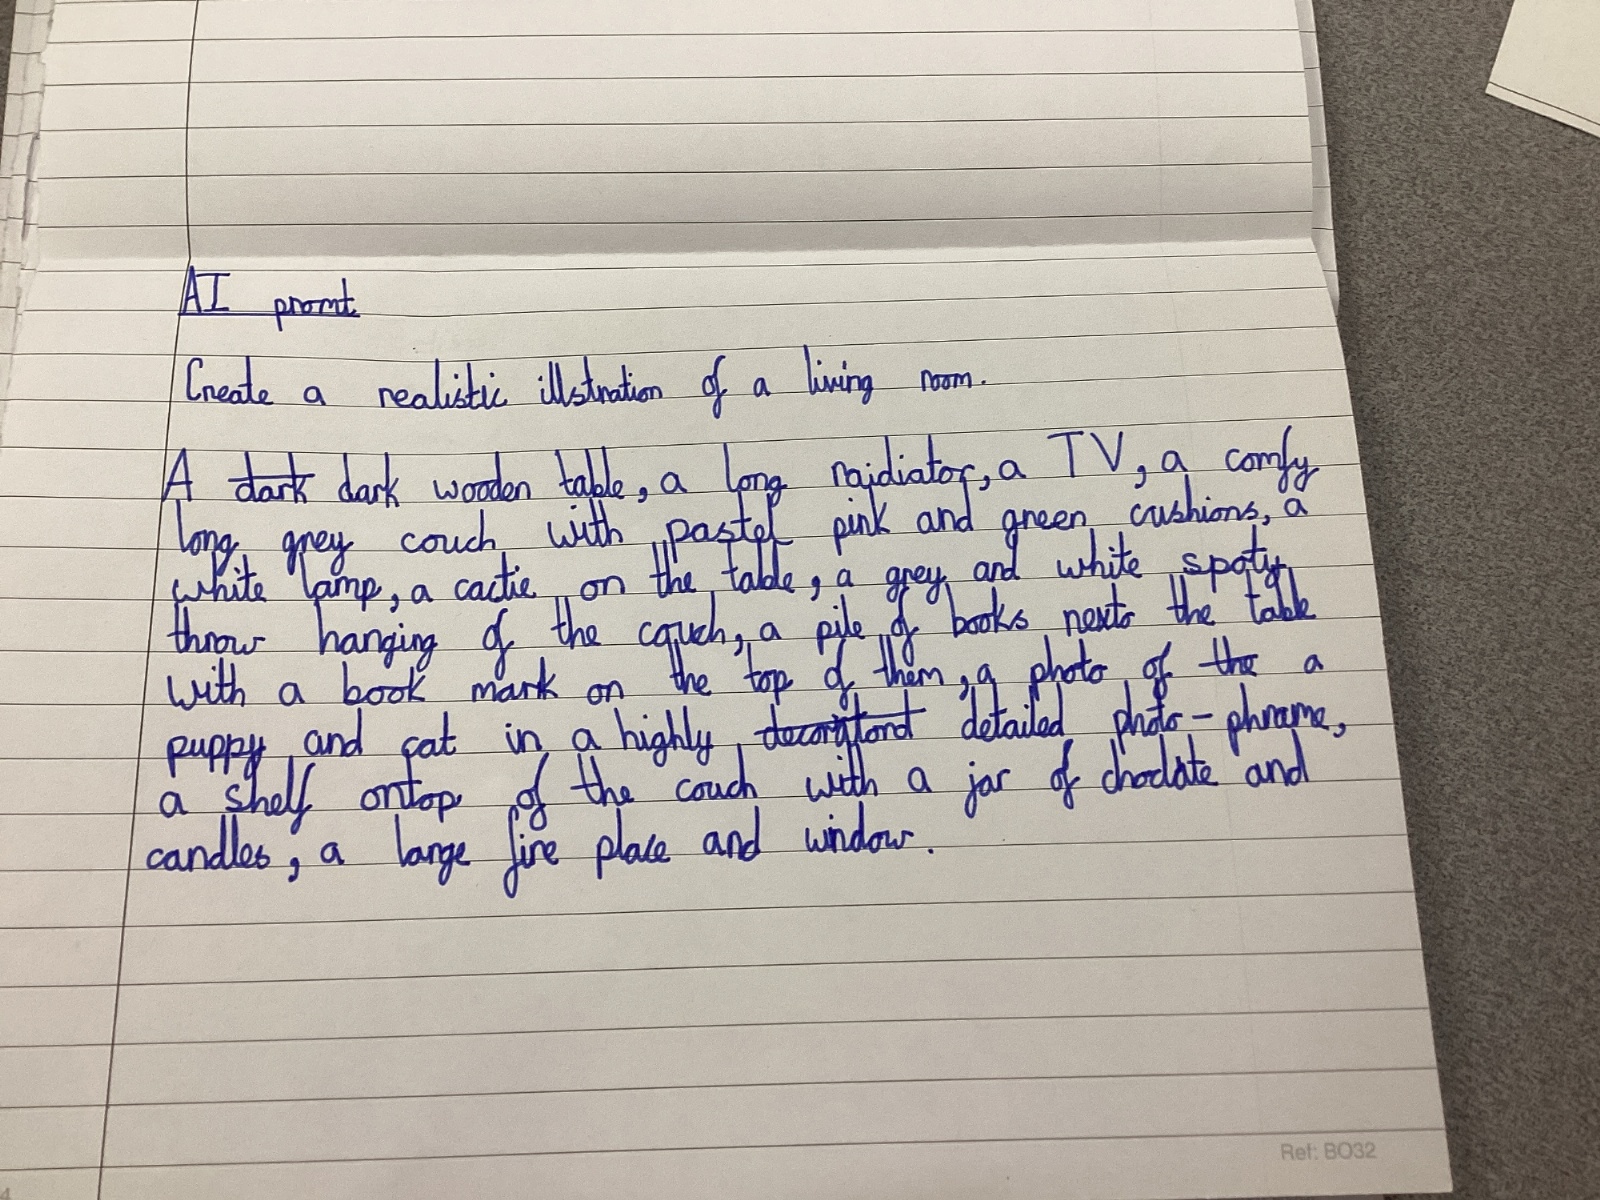 AI promt
Create a realistic illstration of a living room.
A dark dark wooden table, a long raidiator, a TV, a comfy
long grey couch with pastel pink and green cushions, a
white lamp, a cactie on the table, a grey and white spoty
throw hanging of the couch, a pile of books nexto the table
with a book mark on the top of them, a photo of the a
puppy and cat in a highly detailed photo-phrame,
a shelf ontop of the couch with a jar of choclate and
candles, a large fire place and window.
Ref: BO32
4